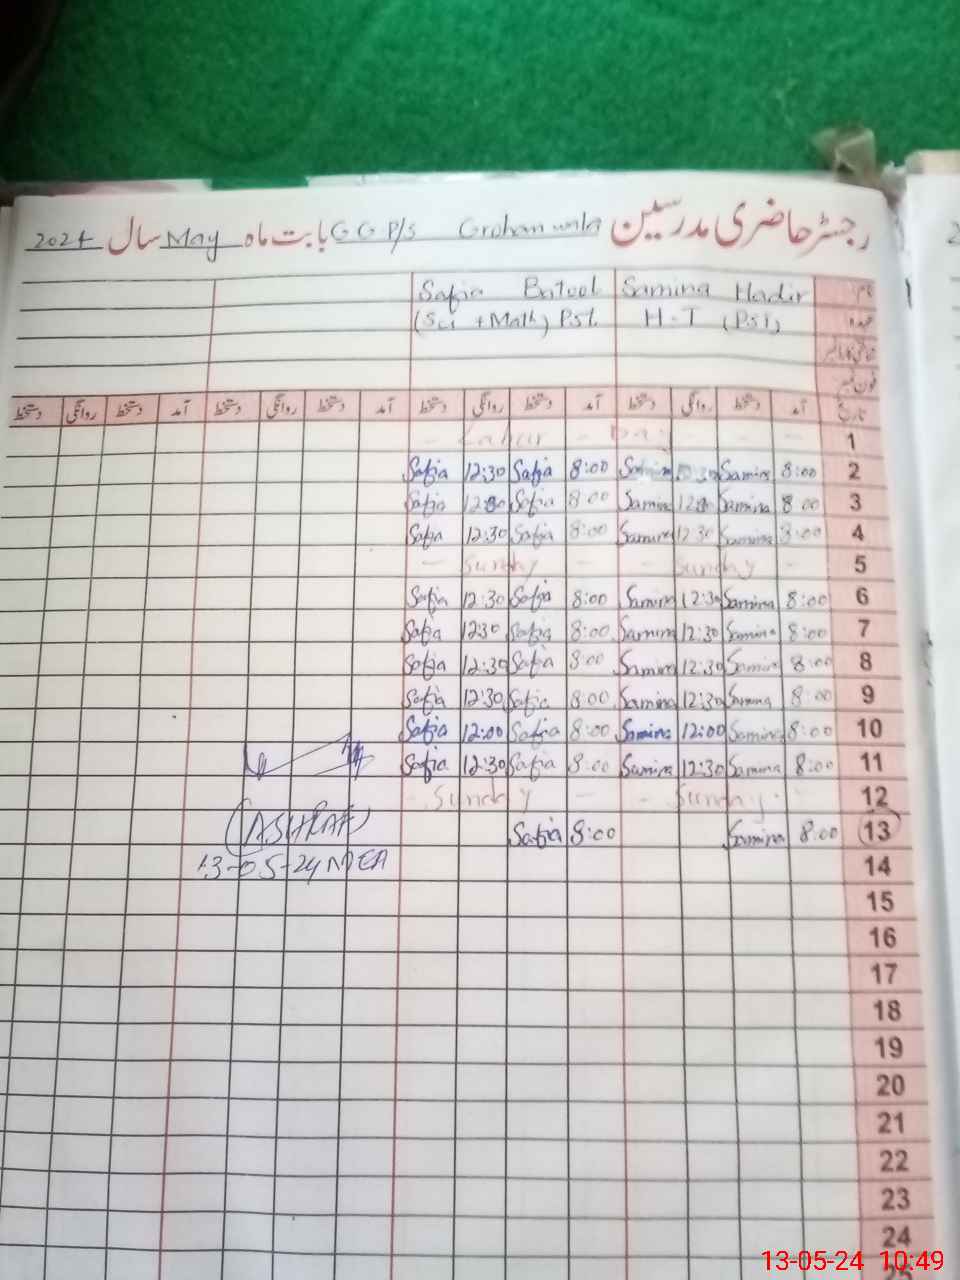 رجسٹر حاضری مدرسین GGP/S Grohanwala بابت ماہ May سال 2024
نام Samina Hadir Safia Batool
عہدہ H.T (PST) (Sci + Math) Pst.
فون نمبر
تاریخ آمد دستخط روانگی دستخط آمد دستخط روانگی دستخط آمد دستخط روانگی دستخط آمد دستخط روانگی دستخط
1 - Labur - Day - - -
2 8:00 Samina Samina 8:00 Safia 12:30 Safia
3 8:00 Samina Samina 8:00 Safia 12:30 Safia
4 8:00 Samina 12:30 Samina 8:00 Safia 12:30 Safia
5 - Sunday - - Sunday -
6 8:00 Samina 12:30 Samina 8:00 Safia 12:30 Safia
7 8:00 Samina 12:30 Samina 8:00 Safia 12:30 Safia
8 8:00 Samina 12:30 Samina 8:00 Safia 12:30 Safia
9 8:00 Samina 12:30 Samina 8:00 Safia 12:30 Safia
10 8:00 Samina 12:00 Samina 8:00 Safia 12:00 Safia
11 8:00 Samina 12:30 Samina 8:00 Safia 12:30 Safia
12 - Sunday - - Sunday -
13 8:00 Samina 8:00 Safia
(ASHRAF)
13-05-24 MEA
14
15
16
17
18
19
20
21
22
23
24
25
13-05-24 10:49